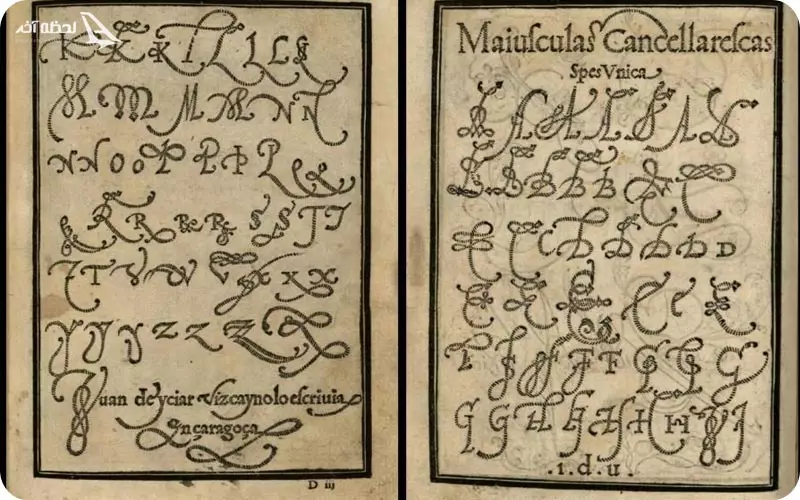 لحظه آخر
K K K L L L L §
M M M M N N
N N O O P P P P
R R R R S S T T
T T V V V X X X
Y Y Y Z Z Z
Juan de yciar Vizcayno lo escrivia
En çaragoça
D iij
Maiusculas Cancellarescas
Spes Vnica
A A A A A A A
B B B B B C C
C C C D D D D D
E E E E E E
F F F F F G G G
G G H H H H H I I
.1.d.u.